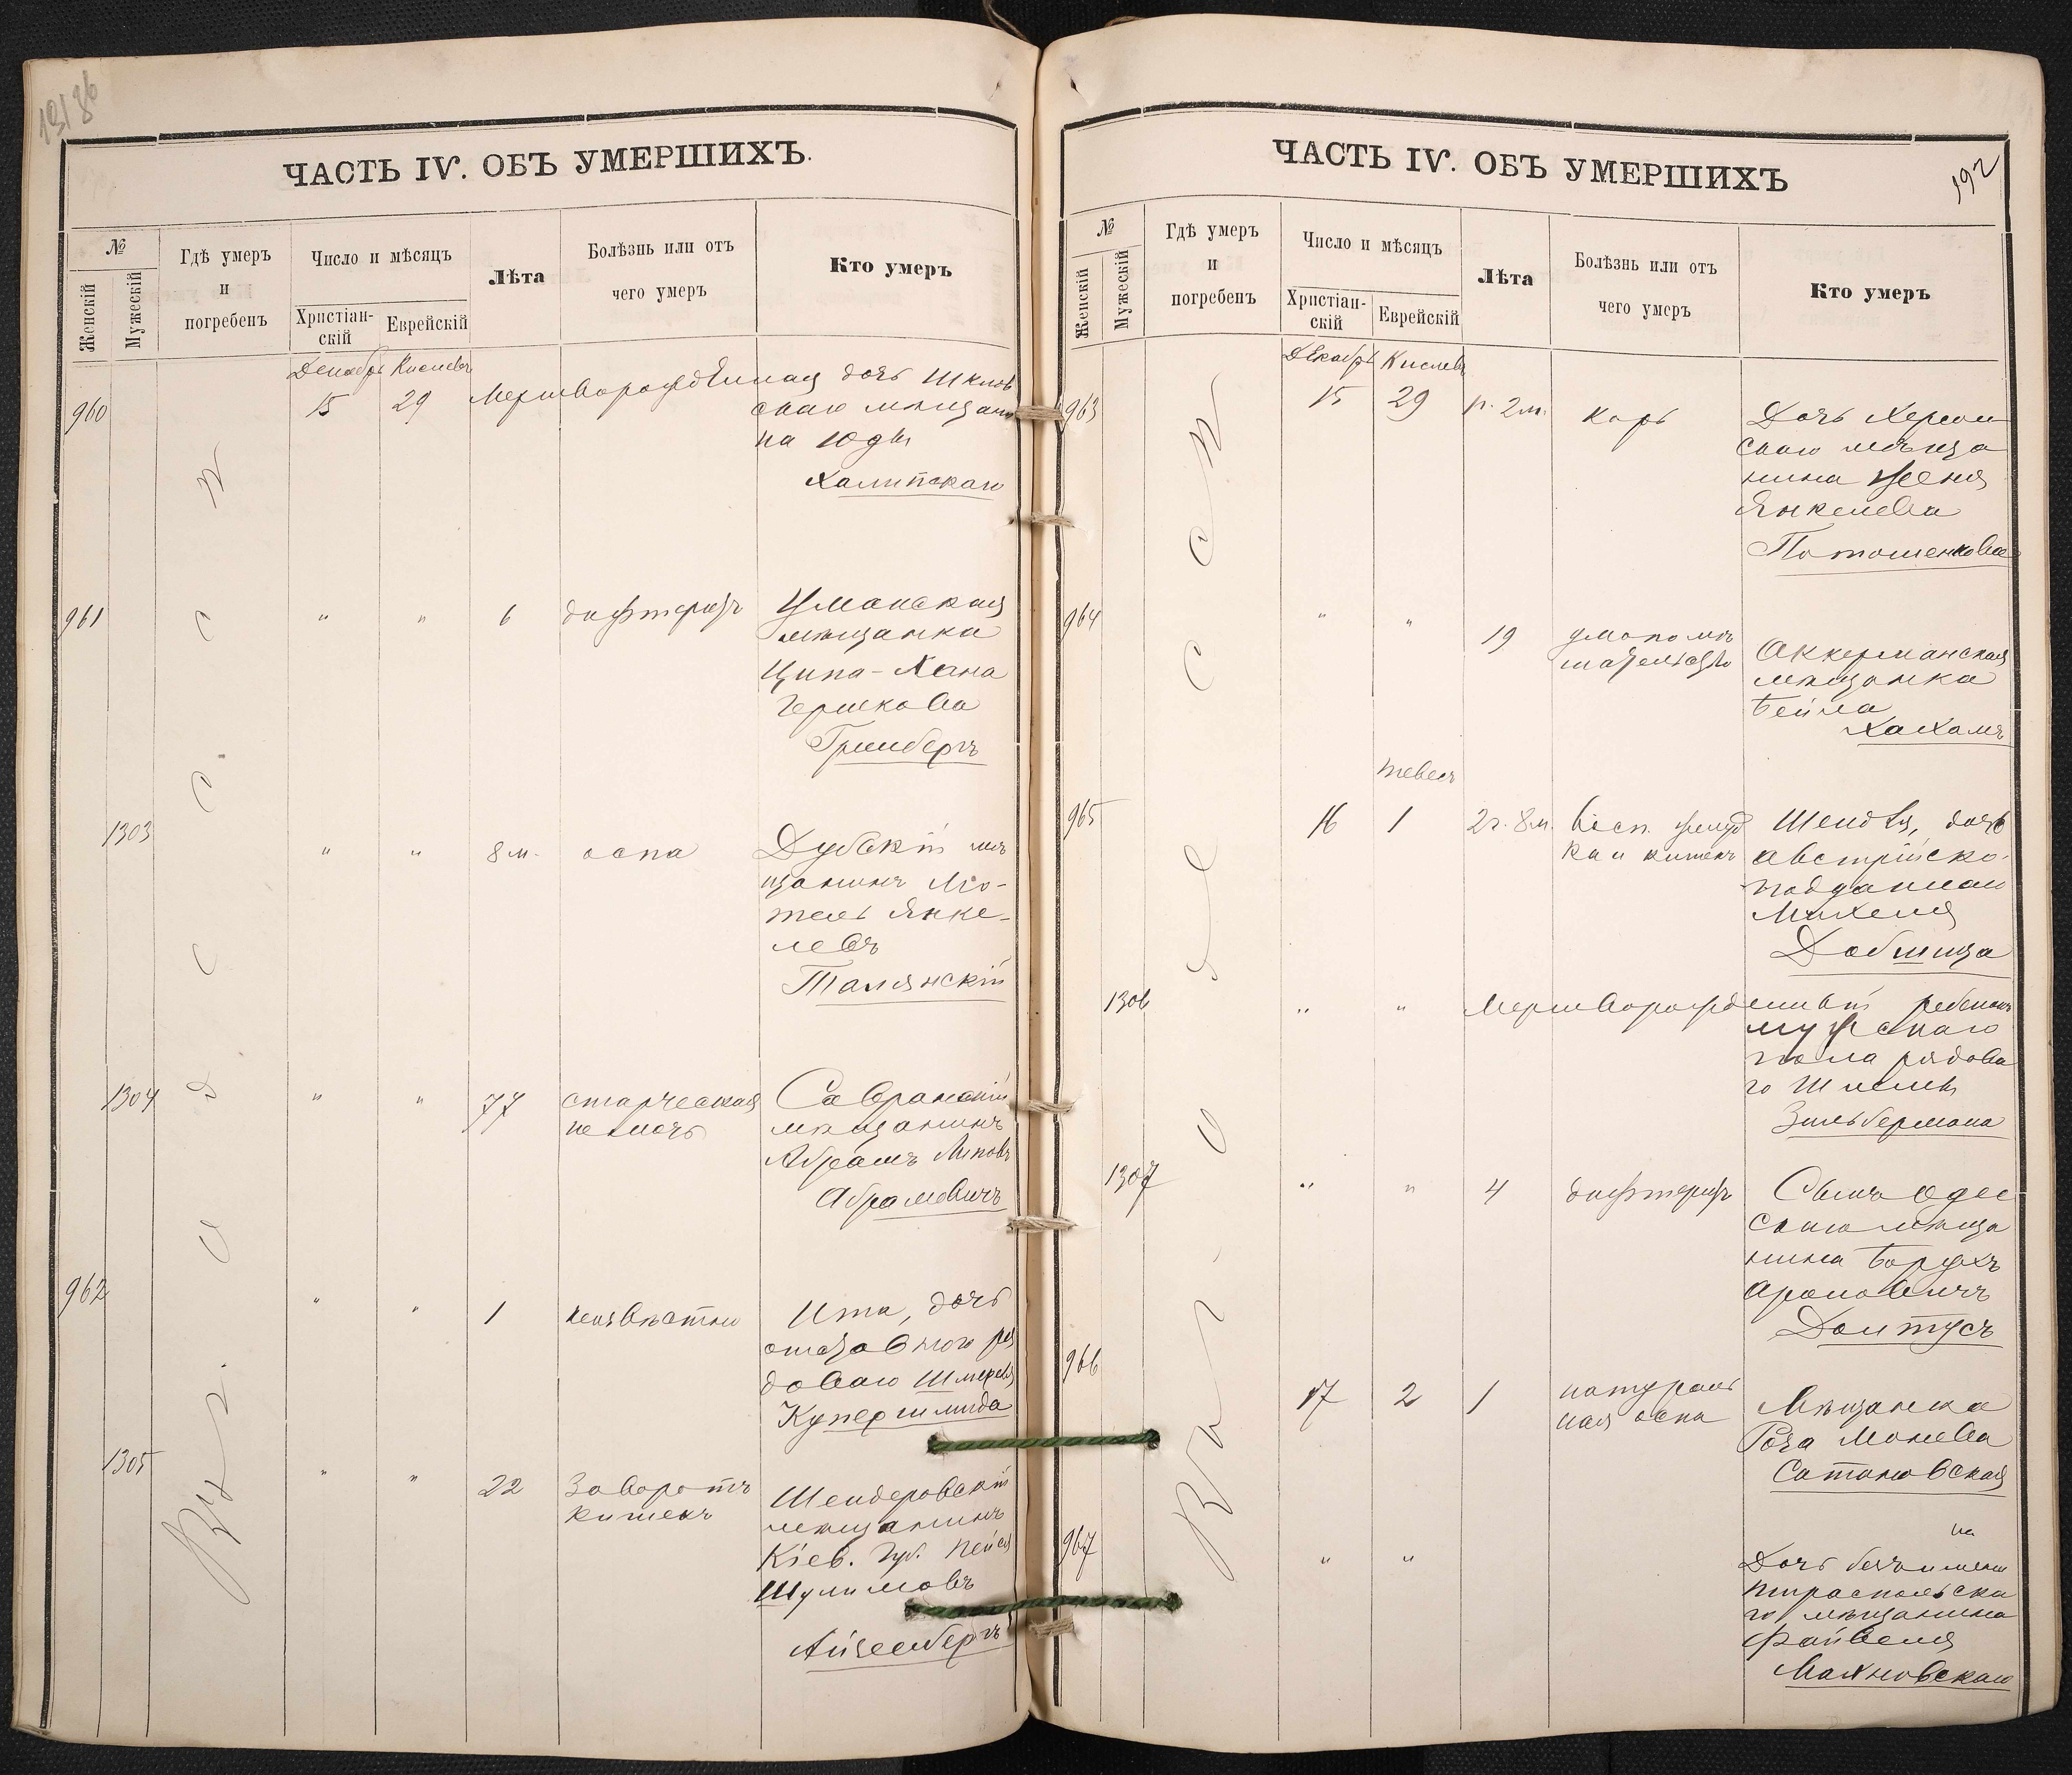 ЧАСТЬ IV. ОБЪ УМЕРШИХЪ.
№
Женскій
Мужескій
Гдѣ умеръ
и
погребенъ
Число и мѣсяцъ
Христіан-
скій
Еврейскій
Лѣта
Болѣзнь или отъ
чего умеръ
Кто умеръ
Въ г. Одессѣ
Декабрь Кислевъ
960 15 29 Мертворожденная дочь Шклов
скаго мѣщани
на Юды
961 " " 6 дифтеритъ Уманская
мѣщанка
Ципа-Хана
Гершкова
Гринбергъ
1303 " " 8 м. оспа Дубскій мѣ
щанинъ Мо-
тель Янке-
левъ
Талянскій
1304 " " 77 старческая Савранскій
немочь мѣщанинъ
Абрамъ Липовъ
Абрамовичъ
962 " " 1 неизвѣстно Ита, дочь
отставного ря
доваго Шмерка
Купершмида
1305 " " 22 Заворотъ Шендеровскій
кишекъ мѣщанинъ
Кіев. губ. Пейся
Шулимовъ
Айзенбергъ
ЧАСТЬ IV. ОБЪ УМЕРШИХЪ
192
№
Женскій
Мужескій
Гдѣ умеръ
и
погребенъ
Число и мѣсяцъ
Христіан-
скій
Еврейскій
Лѣта
Болѣзнь или отъ
чего умеръ
Кто умеръ
Въ г. Одессѣ
Декабрь Кислевъ
963 15 29 1г. 2м. корь Дочь Херсон
скаго мѣща
нина
Янкелева
964 " " 19 умопомѣ
шательство Аккерманская
мѣщанка
Бейла
Хахамъ
Тевесъ
965 16 1 2г. 8м. восп. желуд Шендля, дочь
ка и кишекъ австрійско-
подданнаго
Михеля
1306 " " Мертворожденный ребенокъ
мужскаго
пола рядова
го Шлемы
Зильбермана
1307 " " 4 дифтеритъ Сынъ Одес
скаго мѣща
нина Борухъ
Ароновичъ
966 17 2 1 натураль
ная оспа Мѣщанка
Роза Монева
Сатановская
967 " " на
Дочь безъимен
тираспольска
го мѣщанина
Файвеля
Махновскаго